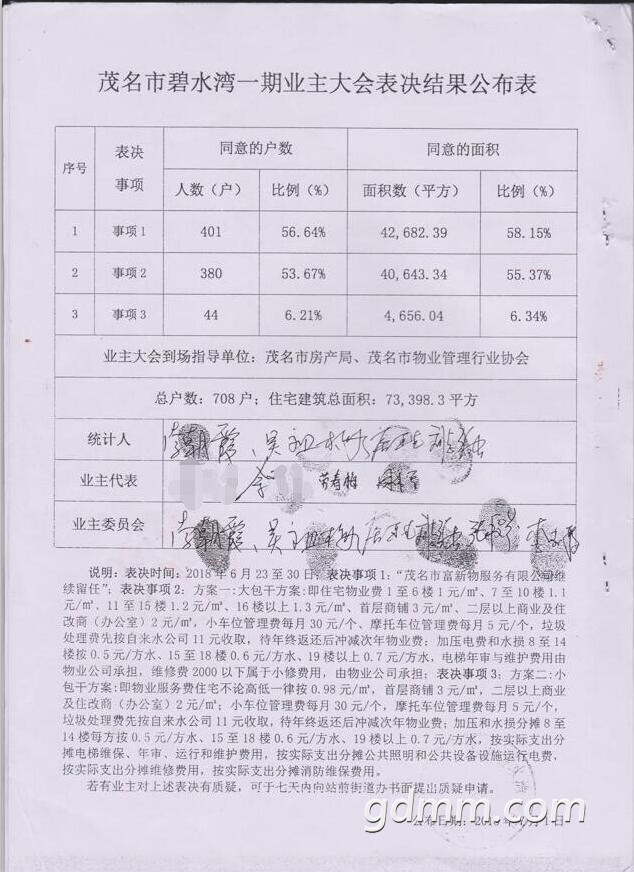 茂名市碧水湾一期业主大会表决结果公布表
序号 表决事项 同意的户数 同意的面积
人数（户） 比例（%） 面积数（平方） 比例（%）
1 事项1 401 56.64% 42,682.39 58.15%
2 事项2 380 53.67% 40,643.34 55.37%
3 事项3 44 6.21% 4,656.04 6.34%
业主大会到场指导单位：茂名市房产局、茂名市物业管理行业协会
总户数：708户；住宅建筑总面积：73,398.3平方
统计人
业主代表
业主委员会
说明：表决时间：2018年6月23至30日；表决事项1：“茂名市富新物服务有限公司继
续留任”，表决事项2：方案一:大包干方案:即住宅物业费1至6楼1元/㎡、7至10楼1.1
元/㎡、11至15楼1.2元/㎡、16楼以上1.3元/㎡、首层商铺3元/㎡、二层以上商业及住
改商（办公室）2元/㎡，小车位管理费每月30元/个、摩托车位管理费每月5元/个，垃圾
处理费先按自来水公司11元收取，待年终返还后冲减次年物业费；加压电费和水损8至14
楼按0.5元/方水、15至18楼0.6元/方水、19楼以上0.7元/方水，电梯年审与维护费用由
物业公司承担，维修费2000以下属于小修费用，由物业公司承担；表决事项3：方案二:小
包干方案:即物业服务费住宅不论高低一律按0.98元/㎡，首层商铺3元/㎡，二层以上商业
及住改商（办公室）2元/㎡；小车位管理费每月30元/个，摩托车位管理费每月5元/个，
垃圾处理费先按自来水公司11元收取，待年终返还后冲减次年物业费；加压和水损分摊8至
14楼每方按0.5元/方水、15至18楼0.6元/方水、19楼以上0.7元/方水，按实际支出分
摊电梯维保、年审、运行和维护费用，按实际支出分摊公共照明和公共设备设施运行电费，
按实际支出分摊维修费用，按实际支出分摊消防维保费用。
若有业主对上述表决有质疑，可于七天内向站前街道办书面提出质疑申请。
公布日期：2018年 月1日
gdmm.com